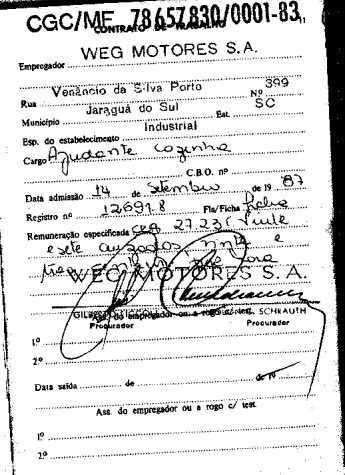 CGC/MF 78657830/0001-83
CONTRATO DE TRABALHO
WEG MOTORES S.A.
Empregador
Venâncio da Silva Porto 399
Rua Nº
Jaraguá do Sul SC
Município Est.
Industrial
Esp. do estabelecimento
Cargo Ajudante cozinha
C.B.O. nº
Data admissão 14 de Setembro de 19 87
Registro nº 12691.8 Fls/Ficha ficha
Remuneração especificada Cz$ 27,23 (Vinte
e sete cruzados vinte e
três por hora
WEG MOTORES S.A.
SCHRAUTH
Ass. do empregador ou a rogo c/ test.
Procurador Procurador
1º
2º
Data saída de de 19
Ass. do empregador ou a rogo c/ test
1º
2º